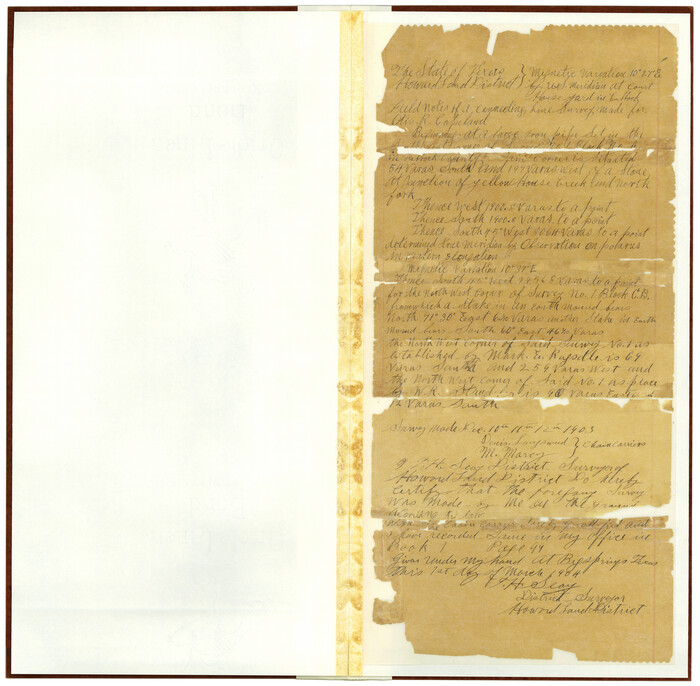 The State of Texas } Magnetic Variation 10° 27' E
Howard Land District } by test meridian at Court
House yard in Lubbock
Field Notes of a Connecting Line Survey Made for
R. Copeland
Beginning at a large iron pipe set in the
corner is situated
Varas South and 197 Varas West of a stone
at Junction of Yellow house Creek and North
fork
Thence West 1900.8 Varas to a point
Thence South 1900.8 Varas to a point
Thence South 45° West Varas to a point
determined true Meridian by Observation on polarus
Western Elongation
Magnetic Variation 10° E
Thence South West Varas to a point
for the North West Corner of Survey No. 1 Block C.B.
from which a Stake in an Earth mound bears
North 71° 30' East 640 Varas another Stake in Earth
Mound bears South 60° East 468 Varas
the North West Corner of Said Survey No. 1 as
Established by Mark E. is 69
Varas South and 259 Varas West and
the North West corner of Said No. 1 as place
by W.R. is 90 Varas East
Varas South
Survey Made Dec. 10th 11th 12th 1903
} Chain Carriers
M. Marcy
I T. H. Seay District Surveyor of
Howard Land District Do hereby
Certify that the foregoing Survey
Was Made by Me on the ground
according to law
and
I have recorded Same in My Office in
Book 1 Page 99
Given Under My hand at Bigsprings Texas
this 1st day of March 1904
T. H. Seay
District Surveyor
Howard Land District